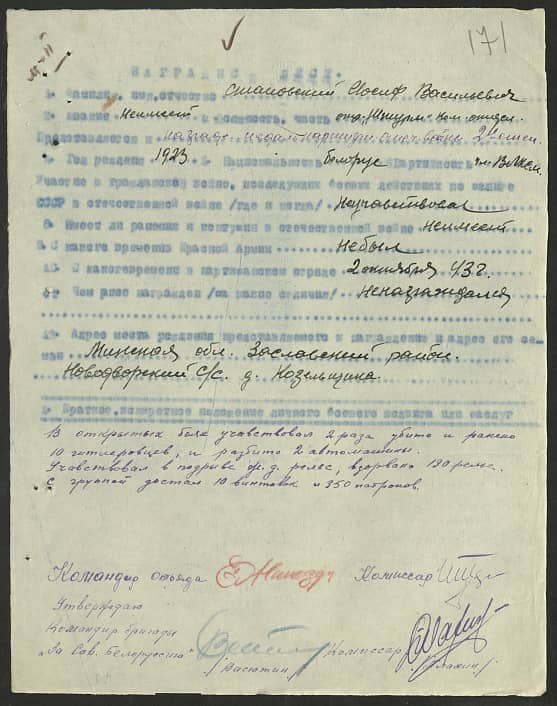 171
НАГРАДНОЙ ЛИСТ.
1. Фамилия, имя, отчество Стаповский Иосиф Васильевич
2. Звание Неимеет и должность, часть отд. "Штурм"
Представляется к награде медаль партизану отеч. войны 2й степ.
Год рождения 1923 Национальность Белорус Партийность чл. ВЛКСМ
Участие в Гражданской войне, последующих боевых действиях по защите
СССР в отечественной войне /где и когда/ Неучавствовал
8. Имеет ли ранения и контузии в отечественной войне Неимеет
9. С какого времени в Красной Армии Небыл
10. С какого времени в партизанском отряде 2 октября 43 г.
11. Чем ранее награжден /за какие отличия/ Ненаграждался
12. Адрес места рождения представляемого к награждению и адрес его се-
мьи Минская обл. Заславский район.
Новодворский С/с. д. Коземщина.
Краткое, конкретное изложение личного боевого подвига или заслуг
В открытых боях учавствовал 2 раза убито и ранено
10 гитлеровцев, и разбито 2 автомашины.
Учавствовал в подрыве ж.д. релес, взорвано 190 релес.
С групой достал 10 винтовак и 350 патронов.
Командир отряда Комиссар
Утверждаю
Командир бригады
"За Сов. Белоруссию" Комиссар
/Васютин/ /Глакин/